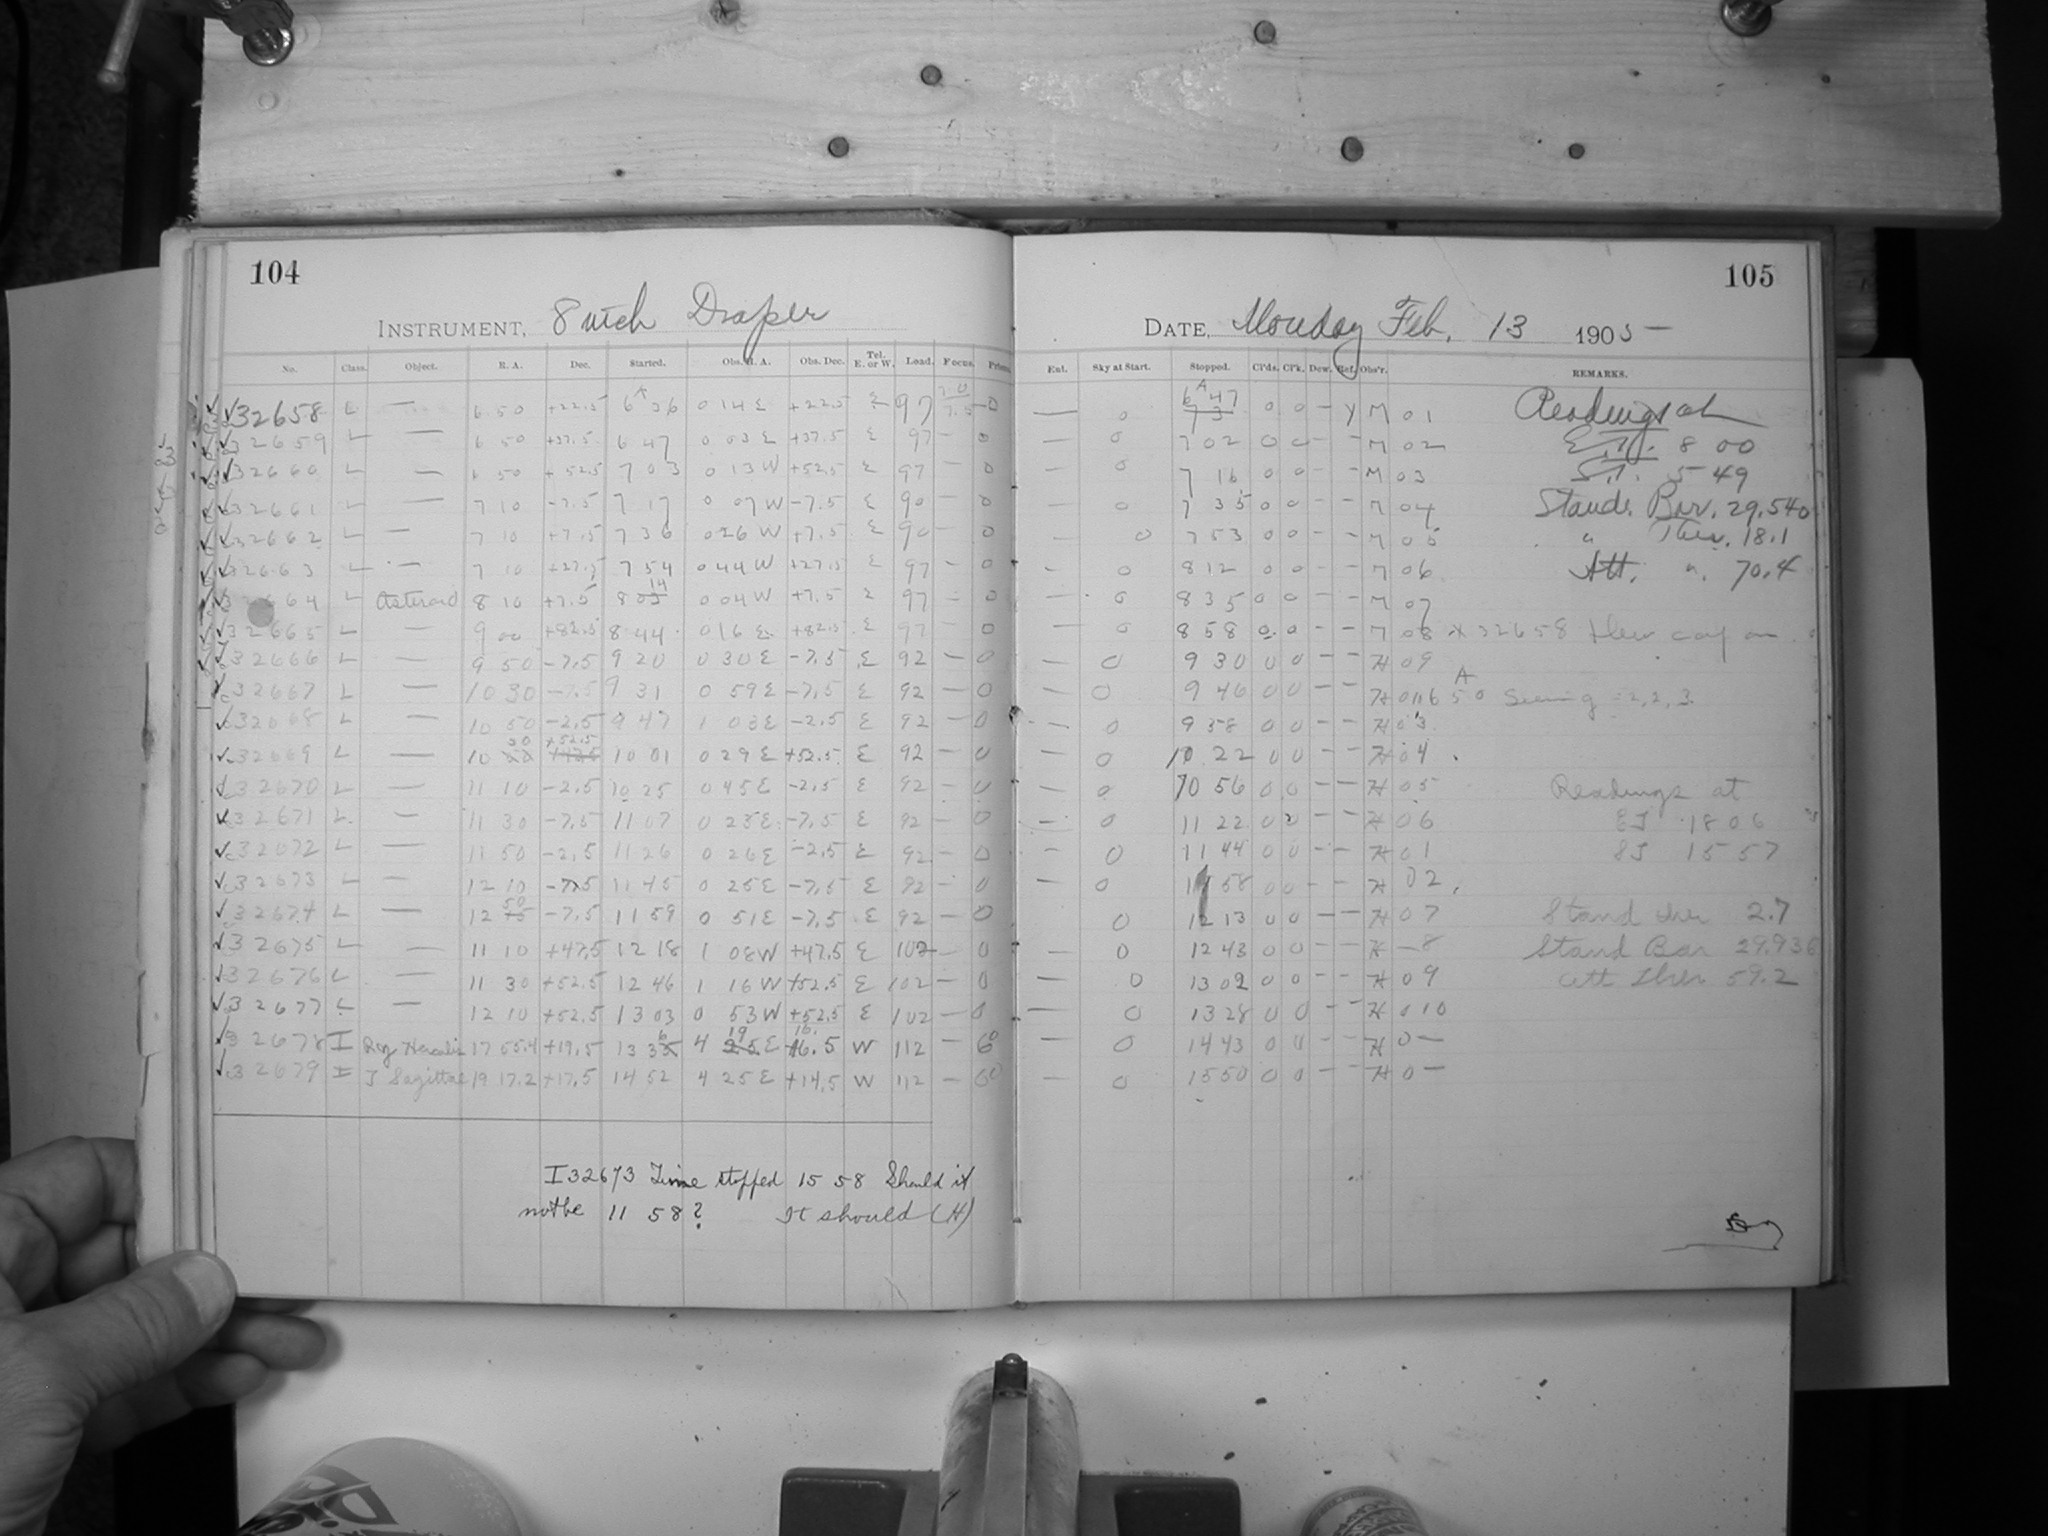 104
INSTRUMENT, 8 inch Draper
No. Class. Object. R. A. Dec. Started. Obs. R. A. Obs. Dec. Tel. E. or W. Load. Focus. Prisms
32658 L — 6 50 +22.5 6 36 0 14 E +22.5 E 97 0
32659 L — 6 50 +37.5 6 47 0 03 E +37.5 E 97 — 0
32660 L — 6 50 +52.5 7 03 0 13 W +52.5 E 97 — 0
32661 L — 7 10 -7.5 7 17 0 07 W -7.5 E 90 — 0
32662 L — 7 10 +7.5 7 36 0 26 W +7.5 E 90 — 0
32663 L — 7 10 +27.5 7 54 0 44 W +27.5 E 97 — 0
64 L Asteroid 8 10 +7.5 8 03 14 0 04 W +7.5 E 97 — 0
32665 L — 9 00 +82.5 8 44 0 16 E +82.5 E 97 — 0
32666 L — 9 50 -7.5 9 20 0 30 E -7.5 E 92 — 0
32667 L — 10 30 -7.5 9 31 0 59 E -7.5 E 92 — 0
32668 L — 10 50 -2.5 9 47 1 03 E -2.5 E 92 — 0
32669 L — 10 30 +52.5 10 01 0 29 E +52.5 E 92 — 0
32670 L — 11 10 -2.5 10 25 0 45 E -2.5 E 92 — 0
32671 L — 11 30 -7.5 11 07 0 23 E -7.5 E 92 — 0
32672 L — 11 50 -2.5 11 26 0 26 E -2.5 E 92 — 0
32673 L — 12 10 -7.5 11 45 0 25 E -7.5 E 92 — 0
32674 L — 12 50 -7.5 11 59 0 51 E -7.5 E 92 — 0
32675 L — 11 10 +47.5 12 18 1 08 W +47.5 E 102 — 0
32676 L — 11 30 +52.5 12 46 1 16 W +52.5 E 102 — 0
32677 L — 12 10 +52.5 13 03 0 53 W +52.5 E 102 — 0
32678 I Herculis 17 55.4 +19.5 13 36 4 19 E 16.5 W 112 — 60
32679 I Sagittae 19 17.2 +17.5 14 52 4 25 E +14.5 W 112 — 60
I 32673 Time stopped 15 58 Should it
not be 11 58? It should (H)
105
DATE, Monday Feb. 13 1905
Ent. Sky at Start. Stopped. Cl'ds. Cl'k. Dew. Ref. Obs'r. REMARKS.
— 0 6 47 7 3 0 0 — Y M 01 Readings at
— 0 7 02 0 0 — — M 02 E.T. 8 00
— 0 7 16 0 0 — — M 03 S.T. 5 49
— 0 7 35 0 0 — — M 04 Stand. Bar. 29.540
— 0 7 53 0 0 — — M 05 " Ther. 18.1
— 0 8 12 0 0 — — M 06 Att. " 70.4
— 0 8 35 0 0 — — M 07
— 0 8 58 0 0 — — M 08 32658 New cap on
— 0 9 30 0 0 — — H 09
— 0 9 46 0 0 — — H 01 Seeing = 2, 2, 3
— 0 9 58 0 0 — — H 03
— 0 10 22 0 0 — — H 04
— 0 10 56 0 0 — — H 05 Readings at
— 0 11 22 0 0 — — H 06 18 06
— 0 11 44 0 0 — — H 01 15 57
— 0 11 58 0 0 — — H 02
— 0 12 13 0 0 — — H 07 Stand Ther 2.7
— 0 12 43 0 0 — — H — 8 Stand Bar 29.936
— 0 13 02 0 0 — — H 09 Att Ther 59.2
— 0 13 28 0 0 — — H 010
— 0 14 43 0 0 — — H 0 —
— 0 15 50 0 0 — — H 0 —